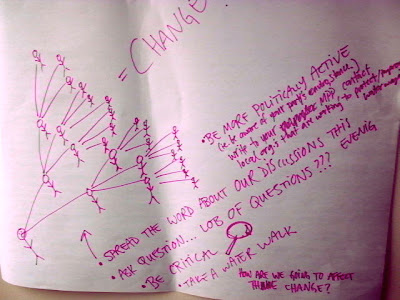 = CHANGE
• BE MORE POLITICALLY ACTIVE
(i.e. be aware of your party's environ. stance)
write to your MPP, contact
local org.s that are working to protect/improve
waterways
• SPREAD THE WORD ABOUT OUR DISCUSSIONS THIS
EVENIG
• ASK QUESTION... LOB OF QUESTIONS ???
• BE CRITICAL
• TAKE A WATER WALK
HOW ARE WE GOING TO AFFECT
CHANGE?